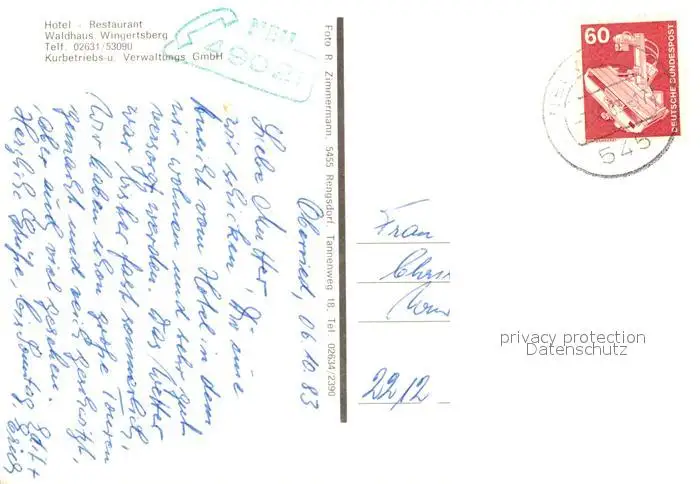 Hotel - Restaurant
Waldhaus Wingertsberg
Telf. 02631/53090
Kurbetriebs-u. Verwaltungs GmbH
NEU
49021
Foto R. Zimmermann, 5455 Rengsdorf, Tannenweg 18, Tel. 02634/2390
60
DEUTSCHE BUNDESPOST
545
Oberried, 06.10.83
Liebe Mutter, Dir eine
wir schicken
Ansicht vom Hotel in dem
wir wohnen und sehr gut
versorgt werden. Das Wetter
war bisher fast sommerlich,
Wir haben schon große Touren
gemacht und viel geschwitzt,
aber auch viel gesehen.
Herzliche Grüße, bis Sonntag
Erich
Frau
22/2
privacy protection
Datenschutz